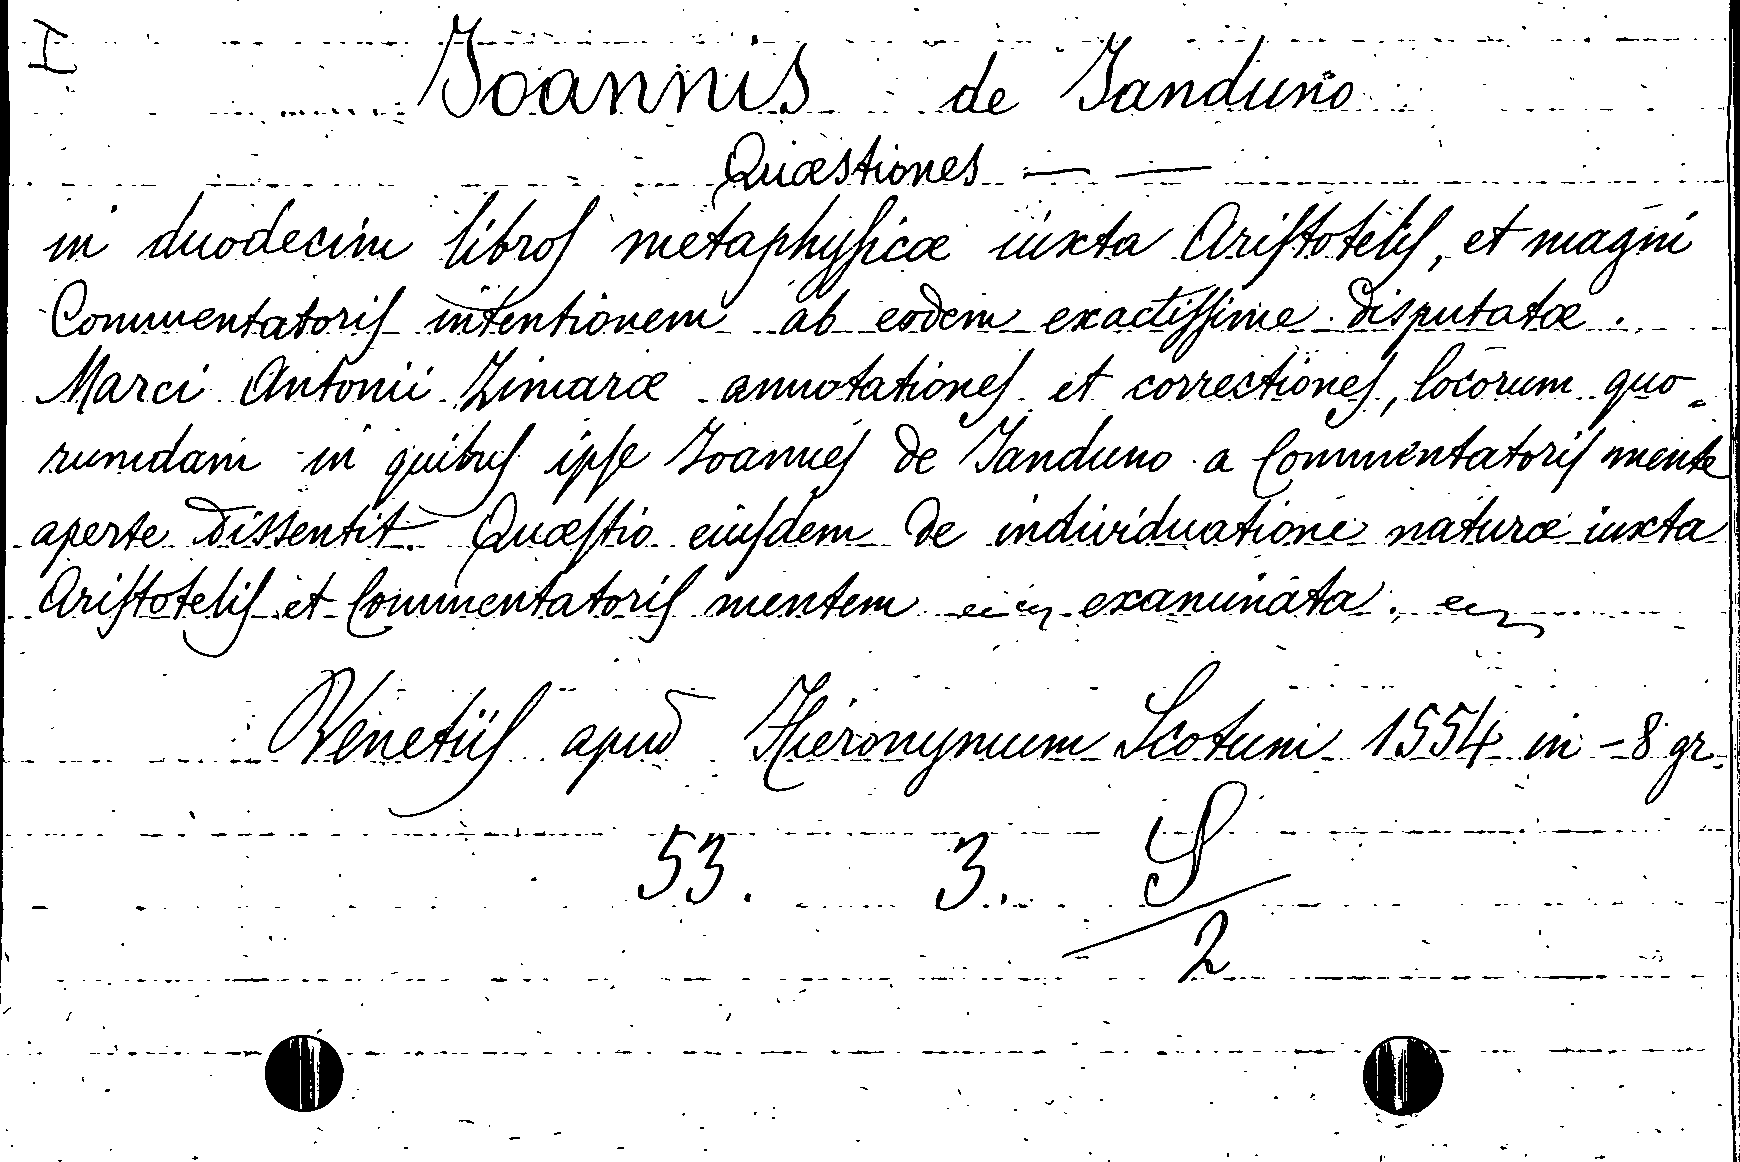 I
Joannis de Janduno
Quæstiones — —
in duodecim libros metaphysicæ iuxta Aristotelis, et magni
Commentatoris intentionem ab eodem exactissime disputatæ.
Marci Antonii Zimaræ annotationes et correctiones, locorum quo-
rumdam in quibus ipse Joannes de Janduno a Commentatoris mente
aperte dissentit. Quæstio eiusdem de individuatione naturæ iuxta
Aristotelis et Commentatoris mentem examinata.
Venetiis apud Hieronymum Scotum 1554 in -8 gr.
53. 3. S/2